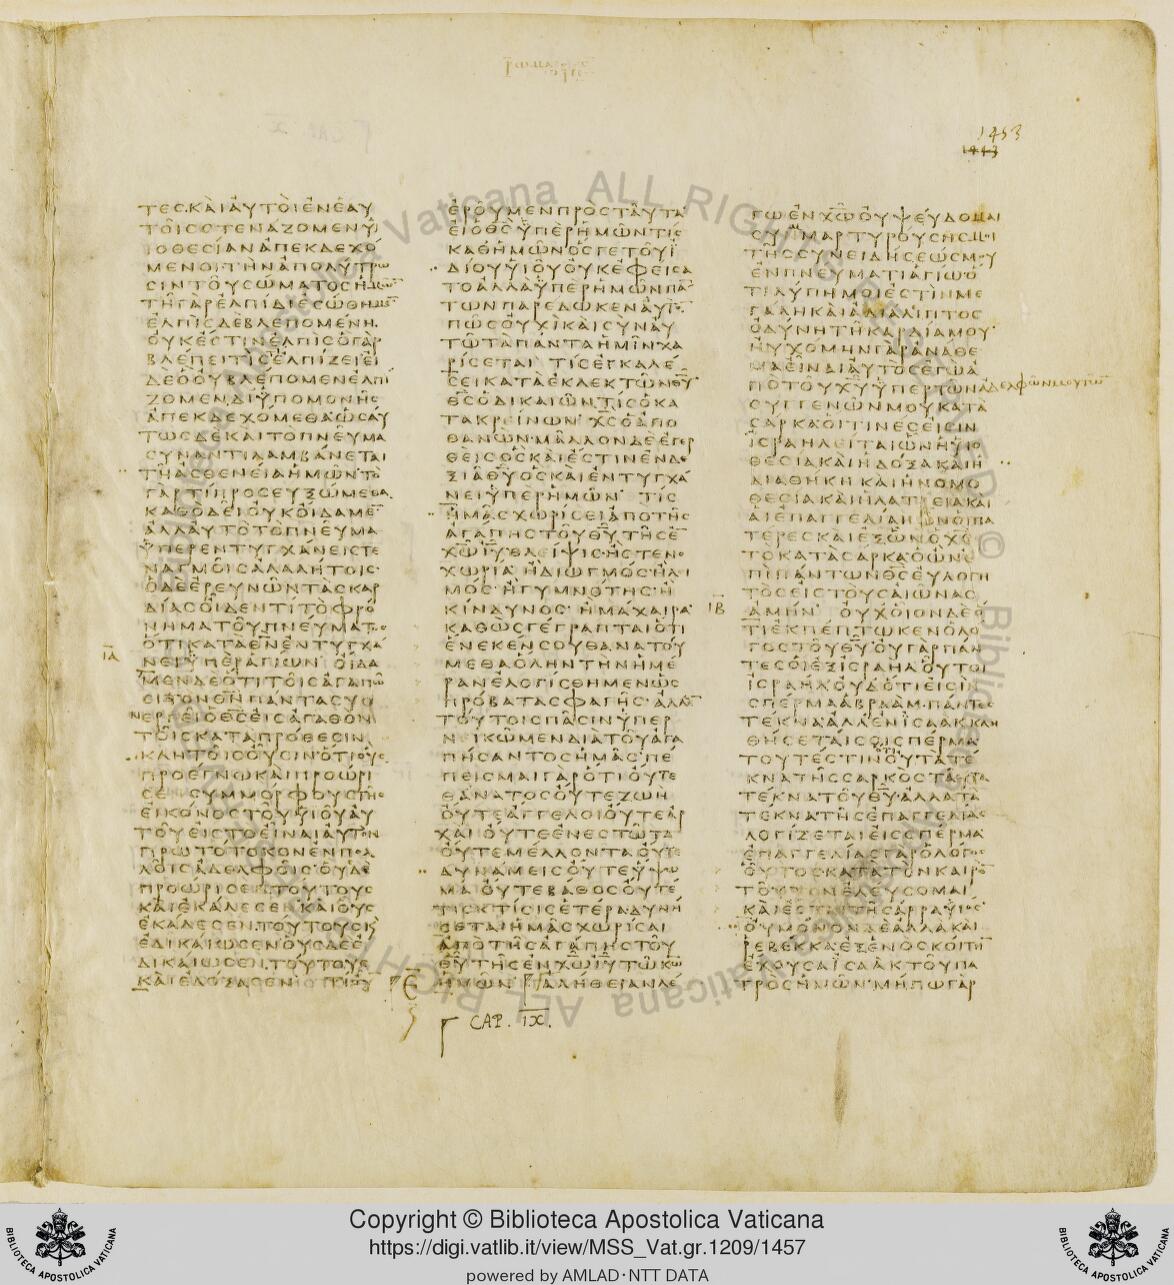 1453
1443
ΤΕΣ ΚΑΙ ΑΥΤΟΙ ΕΝ ΕΑΥ
ΤΟΙΣ ΣΤΕΝΑΖΟΜΕΝ Υ
ΙΟΘΕΣΙΑΝ ΑΠΕΚΔΕΧΟ
ΜΕΝΟΙ ΤΗΝ ΑΠΟΛΥΤΡΩ
ΣΙΝ ΤΟΥ ΣΩΜΑΤΟΣ ΗΜΩΝ
ΤΗ ΓΑΡ ΕΛΠΙΔΙ ΕΣΩΘΗΜΕ
ΕΛΠΙΣ ΔΕ ΒΛΕΠΟΜΕΝΗ
ΟΥΚ ΕΣΤΙΝ ΕΛΠΙΣ Ο ΓΑΡ
ΒΛΕΠΕΙ ΤΙΣ ΕΛΠΙΖΕΙ ΕΙ
ΔΕ Ο ΟΥ ΒΛΕΠΟΜΕΝ ΕΛΠΙ
ΖΟΜΕΝ ΔΙ ΥΠΟΜΟΝΗΣ
ΑΠΕΚΔΕΧΟΜΕΘΑ ΩΣΑΥ
ΤΩΣ ΔΕ ΚΑΙ ΤΟ ΠΝΕΥΜΑ
ΣΥΝΑΝΤΙΛΑΜΒΑΝΕΤΑΙ
ΤΗ ΑΣΘΕΝΕΙΑ ΗΜΩΝ ΤΟ
ΓΑΡ ΤΙ ΠΡΟΣΕΥΞΩΜΕΘΑ
ΚΑΘΟ ΔΕΙ ΟΥΚ ΟΙΔΑΜΕ
ΑΛΛΑ ΑΥΤΟ ΤΟ ΠΝΕΥΜΑ
ΥΠΕΡΕΝΤΥΓΧΑΝΕΙ ΣΤΕ
ΝΑΓΜΟΙΣ ΑΛΑΛΗΤΟΙΣ
Ο ΔΕ ΕΡΕΥΝΩΝ ΤΑΣ ΚΑΡ
ΔΙΑΣ ΟΙΔΕΝ ΤΙ ΤΟ ΦΡΟ
ΝΗΜΑ ΤΟΥ ΠΝΕΥΜΑΤΟΣ
ΟΤΙ ΚΑΤΑ ΘΝ ΕΝΤΥΓΧΑ
ΙΑ
ΝΕΙ ΥΠΕΡ ΑΓΙΩΝ ΟΙΔΑ
ΜΕΝ ΔΕ ΟΤΙ ΤΟΙΣ ΑΓΑΠΩ
ΣΙ ΤΟΝ ΘΝ ΠΑΝΤΑ ΣΥ
ΝΕΡΓΕΙ Ο ΘΣ ΕΙΣ ΑΓΑΘΟΝ
ΤΟΙΣ ΚΑΤΑ ΠΡΟΘΕΣΙΝ
ΚΛΗΤΟΙΣ ΟΥΣΙΝ ΟΤΙ ΟΥΣ
ΠΡΟΕΓΝΩ ΚΑΙ ΠΡΟΩΡΙ
ΣΕΝ ΣΥΜΜΟΡΦΟΥΣ ΤΗΣ
ΕΙΚΟΝΟΣ ΤΟΥ ΥΙΟΥ ΑΥ
ΤΟΥ ΕΙΣ ΤΟ ΕΙΝΑΙ ΑΥΤΟΝ
ΠΡΩΤΟΤΟΚΟΝ ΕΝ ΠΟΛ
ΛΟΙΣ ΑΔΕΛΦΟΙΣ ΟΥΣ ΔΕ
ΠΡΟΩΡΙΣΕΝ ΤΟΥΤΟΥΣ
ΚΑΙ ΕΚΑΛΕΣΕΝ ΚΑΙ ΟΥΣ
ΕΚΑΛΕΣΕΝ ΤΟΥΤΟΥΣ Κ
ΕΔΙΚΑΙΩΣΕΝ ΟΥΣ ΔΕ Ε
ΔΙΚΑΙΩΣΕΝ ΤΟΥΤΟΥΣ
ΚΑΙ ΕΔΟΞΑΣΕΝ ΤΙ ΟΥ
ΕΡΟΥΜΕΝ ΠΡΟΣ ΤΑΥΤΑ
ΕΙ Ο ΘΣ ΥΠΕΡ ΗΜΩΝ ΤΙΣ
ΚΑΘ ΗΜΩΝ ΟΣ ΓΕ ΤΟΥ Ι
ΔΙΟΥ ΥΙΟΥ ΟΥΚ ΕΦΕΙΣΑ
ΤΟ ΑΛΛΑ ΥΠΕΡ ΗΜΩΝ ΠΑ
ΤΩΝ ΠΑΡΕΔΩΚΕΝ ΑΥΤΟ
ΠΩΣ ΟΥΧΙ ΚΑΙ ΣΥΝ ΑΥ
ΤΩ ΤΑ ΠΑΝΤΑ ΗΜΙΝ ΧΑ
ΡΙΣΕΤΑΙ ΤΙΣ ΕΓΚΑΛΕ
ΣΕΙ ΚΑΤΑ ΕΚΛΕΚΤΩΝ ΘΥ
ΘΣ Ο ΔΙΚΑΙΩΝ ΤΙΣ Ο ΚΑ
ΤΑΚΡΕΙΝΩΝ ΧΣ Ο ΑΠΟ
ΘΑΝΩΝ ΜΑΛΛΟΝ ΔΕ ΕΓΕΡ
ΘΕΙΣ ΟΣ ΚΑΙ ΕΣΤΙΝ ΕΝ ΔΕ
ΞΙΑ ΘΥ ΟΣ ΚΑΙ ΕΝΤΥΓΧΑ
ΝΕΙ ΥΠΕΡ ΗΜΩΝ ΤΙΣ
ΗΜΑΣ ΧΩΡΙΣΕΙ ΑΠΟ ΤΗΣ
ΑΓΑΠΗΣ ΤΟΥ ΘΥ ΤΗΣ Ε
ΧΩ ΙΥ ΘΛΕΙΨΙΣ Η ΣΤΕΝΟ
ΧΩΡΙΑ Η ΔΙΩΓΜΟΣ Η ΛΙ
ΜΟΣ Η ΓΥΜΝΟΤΗΣ Η
ΚΙΝΔΥΝΟΣ Η ΜΑΧΑΙΡΑ
ΚΑΘΩΣ ΓΕΓΡΑΠΤΑΙ ΟΤΙ
ΕΝΕΚΕΝ ΣΟΥ ΘΑΝΑΤΟΥ
ΜΕΘΑ ΟΛΗΝ ΤΗΝ ΗΜΕ
ΡΑΝ ΕΛΟΓΙΣΘΗΜΕΝ ΩΣ
ΠΡΟΒΑΤΑ ΣΦΑΓΗΣ ΑΛΛ
ΤΟΥΤΟΙΣ ΠΑΣΙΝ ΥΠΕΡ
ΝΕΙΚΩΜΕΝ ΔΙΑ ΤΟΥ ΑΓΑ
ΠΗΣΑΝΤΟΣ ΗΜΑΣ ΠΕ
ΠΕΙΣΜΑΙ ΓΑΡ ΟΤΙ ΟΥΤΕ
ΘΑΝΑΤΟΣ ΟΥΤΕ ΖΩΗ
ΟΥΤΕ ΑΓΓΕΛΟΙ ΟΥΤΕ ΑΡ
ΧΑΙ ΟΥΤΕ ΕΝΕΣΤΩΤΑ
ΟΥΤΕ ΜΕΛΛΟΝΤΑ ΟΥΤΕ
ΔΥΝΑΜΕΙΣ ΟΥΤΕ ΥΨΩ
ΜΑ ΟΥΤΕ ΒΑΘΟΣ ΟΥΤΕ
ΤΙΣ ΚΤΙΣΙΣ ΕΤΕΡΑ ΔΥΝΗ
ΣΕΤΑΙ ΗΜΑΣ ΧΩΡΙΣΑΙ
ΑΠΟ ΤΗΣ ΑΓΑΠΗΣ ΤΟΥ
ΘΥ ΤΗΣ ΕΝ ΧΩ ΙΥ ΤΩ ΚΩ
ΗΜΩΝ ΑΛΗΘΕΙΑΝ ΛΕ
CAP. IX.
ΓΩ ΕΝ ΧΩ ΟΥ ΨΕΥΔΟΜΑΙ
ΣΥΜΜΑΡΤΥΡΟΥΣΗΣ ΜΟΙ
ΤΗΣ ΣΥΝΕΙΔΗΣΕΩΣ ΜΟΥ
ΕΝ ΠΝΕΥΜΑΤΙ ΑΓΙΩ Ο
ΤΙ ΛΥΠΗ ΜΟΙ ΕΣΤΙΝ ΜΕ
ΓΑΛΗ ΚΑΙ ΑΔΙΑΛΙΠΤΟΣ
ΟΔΥΝΗ ΤΗ ΚΑΡΔΙΑ ΜΟΥ
ΗΥΧΟΜΗΝ ΓΑΡ ΑΝΑΘΕ
ΜΑ ΕΙΝΑΙ ΑΥΤΟΣ ΕΓΩ Α
ΠΟ ΤΟΥ ΧΥ ΥΠΕΡ ΤΩΝ αδελφων μου των
ΣΥΓΓΕΝΩΝ ΜΟΥ ΚΑΤΑ
ΣΑΡΚΑ ΟΙΤΙΝΕΣ ΕΙΣΙΝ
ΙΣΡΑΗΛΕΙΤΑΙ ΩΝ Η ΥΙΟ
ΘΕΣΙΑ ΚΑΙ Η ΔΟΞΑ ΚΑΙ Η
ΔΙΑΘΗΚΗ ΚΑΙ Η ΝΟΜΟ
ΘΕΣΙΑ ΚΑΙ Η ΛΑΤΡΕΙΑ ΚΑΙ
ΑΙ ΕΠΑΓΓΕΛΙΑΙ ΩΝ ΟΙ ΠΑ
ΤΕΡΕΣ ΚΑΙ ΕΞ ΩΝ Ο ΧΣ
ΤΟ ΚΑΤΑ ΣΑΡΚΑ Ο ΩΝ Ε
ΠΙ ΠΑΝΤΩΝ ΘΣ ΕΥΛΟΓΗ
ΤΟΣ ΕΙΣ ΤΟΥΣ ΑΙΩΝΑΣ
ΙΒ
ΑΜΗΝ ΟΥΧ ΟΙΟΝ ΔΕ Ο
ΤΙ ΕΚΠΕΠΤΩΚΕΝ Ο ΛΟ
ΓΟΣ ΤΟΥ ΘΥ ΟΥ ΓΑΡ ΠΑΝ
ΤΕΣ ΟΙ ΕΞ ΙΣΡΑΗΛ ΟΥΤΟΙ
ΙΣΡΑΗΛ ΟΥΔ ΟΤΙ ΕΙΣΙΝ
ΣΠΕΡΜΑ ΑΒΡΑΑΜ ΠΑΝΤΕΣ
ΤΕΚΝΑ ΑΛΛ ΕΝ ΙΣΑΑΚ ΚΛΗ
ΘΗΣΕΤΑΙ ΣΟΙ ΣΠΕΡΜΑ
ΤΟΥΤ ΕΣΤΙΝ ΟΤΙ ΟΥ ΤΑ ΤΕ
ΚΝΑ ΤΗΣ ΣΑΡΚΟΣ ΤΑΥΤΑ
ΤΕΚΝΑ ΤΟΥ ΘΥ ΑΛΛΑ ΤΑ
ΤΕΚΝΑ ΤΗΣ ΕΠΑΓΓΕΛΙΑΣ
ΛΟΓΙΖΕΤΑΙ ΕΙΣ ΣΠΕΡΜΑ
ΕΠΑΓΓΕΛΙΑΣ ΓΑΡ Ο ΛΟΓΟΣ
ΟΥΤΟΣ ΚΑΤΑ ΤΟΝ ΚΑΙΡΟ
ΤΟΥΤΟΝ ΕΛΕΥΣΟΜΑΙ
ΚΑΙ ΕΣΤΑΙ ΤΗ ΣΑΡΡΑ ΥΙΟΣ
ΟΥ ΜΟΝΟΝ ΔΕ ΑΛΛΑ ΚΑΙ
ΡΕΒΕΚΚΑ ΕΞ ΕΝΟΣ ΚΟΙΤΗ
ΕΧΟΥΣΑ ΙΣΑΑΚ ΤΟΥ ΠΑ
ΤΡΟΣ ΗΜΩΝ ΜΗΠΩ ΓΑΡ
Copyright © Biblioteca Apostolica Vaticana
https://digi.vatlib.it/view/MSS_Vat.gr.1209/1457
powered by AMLAD·NTT DATA